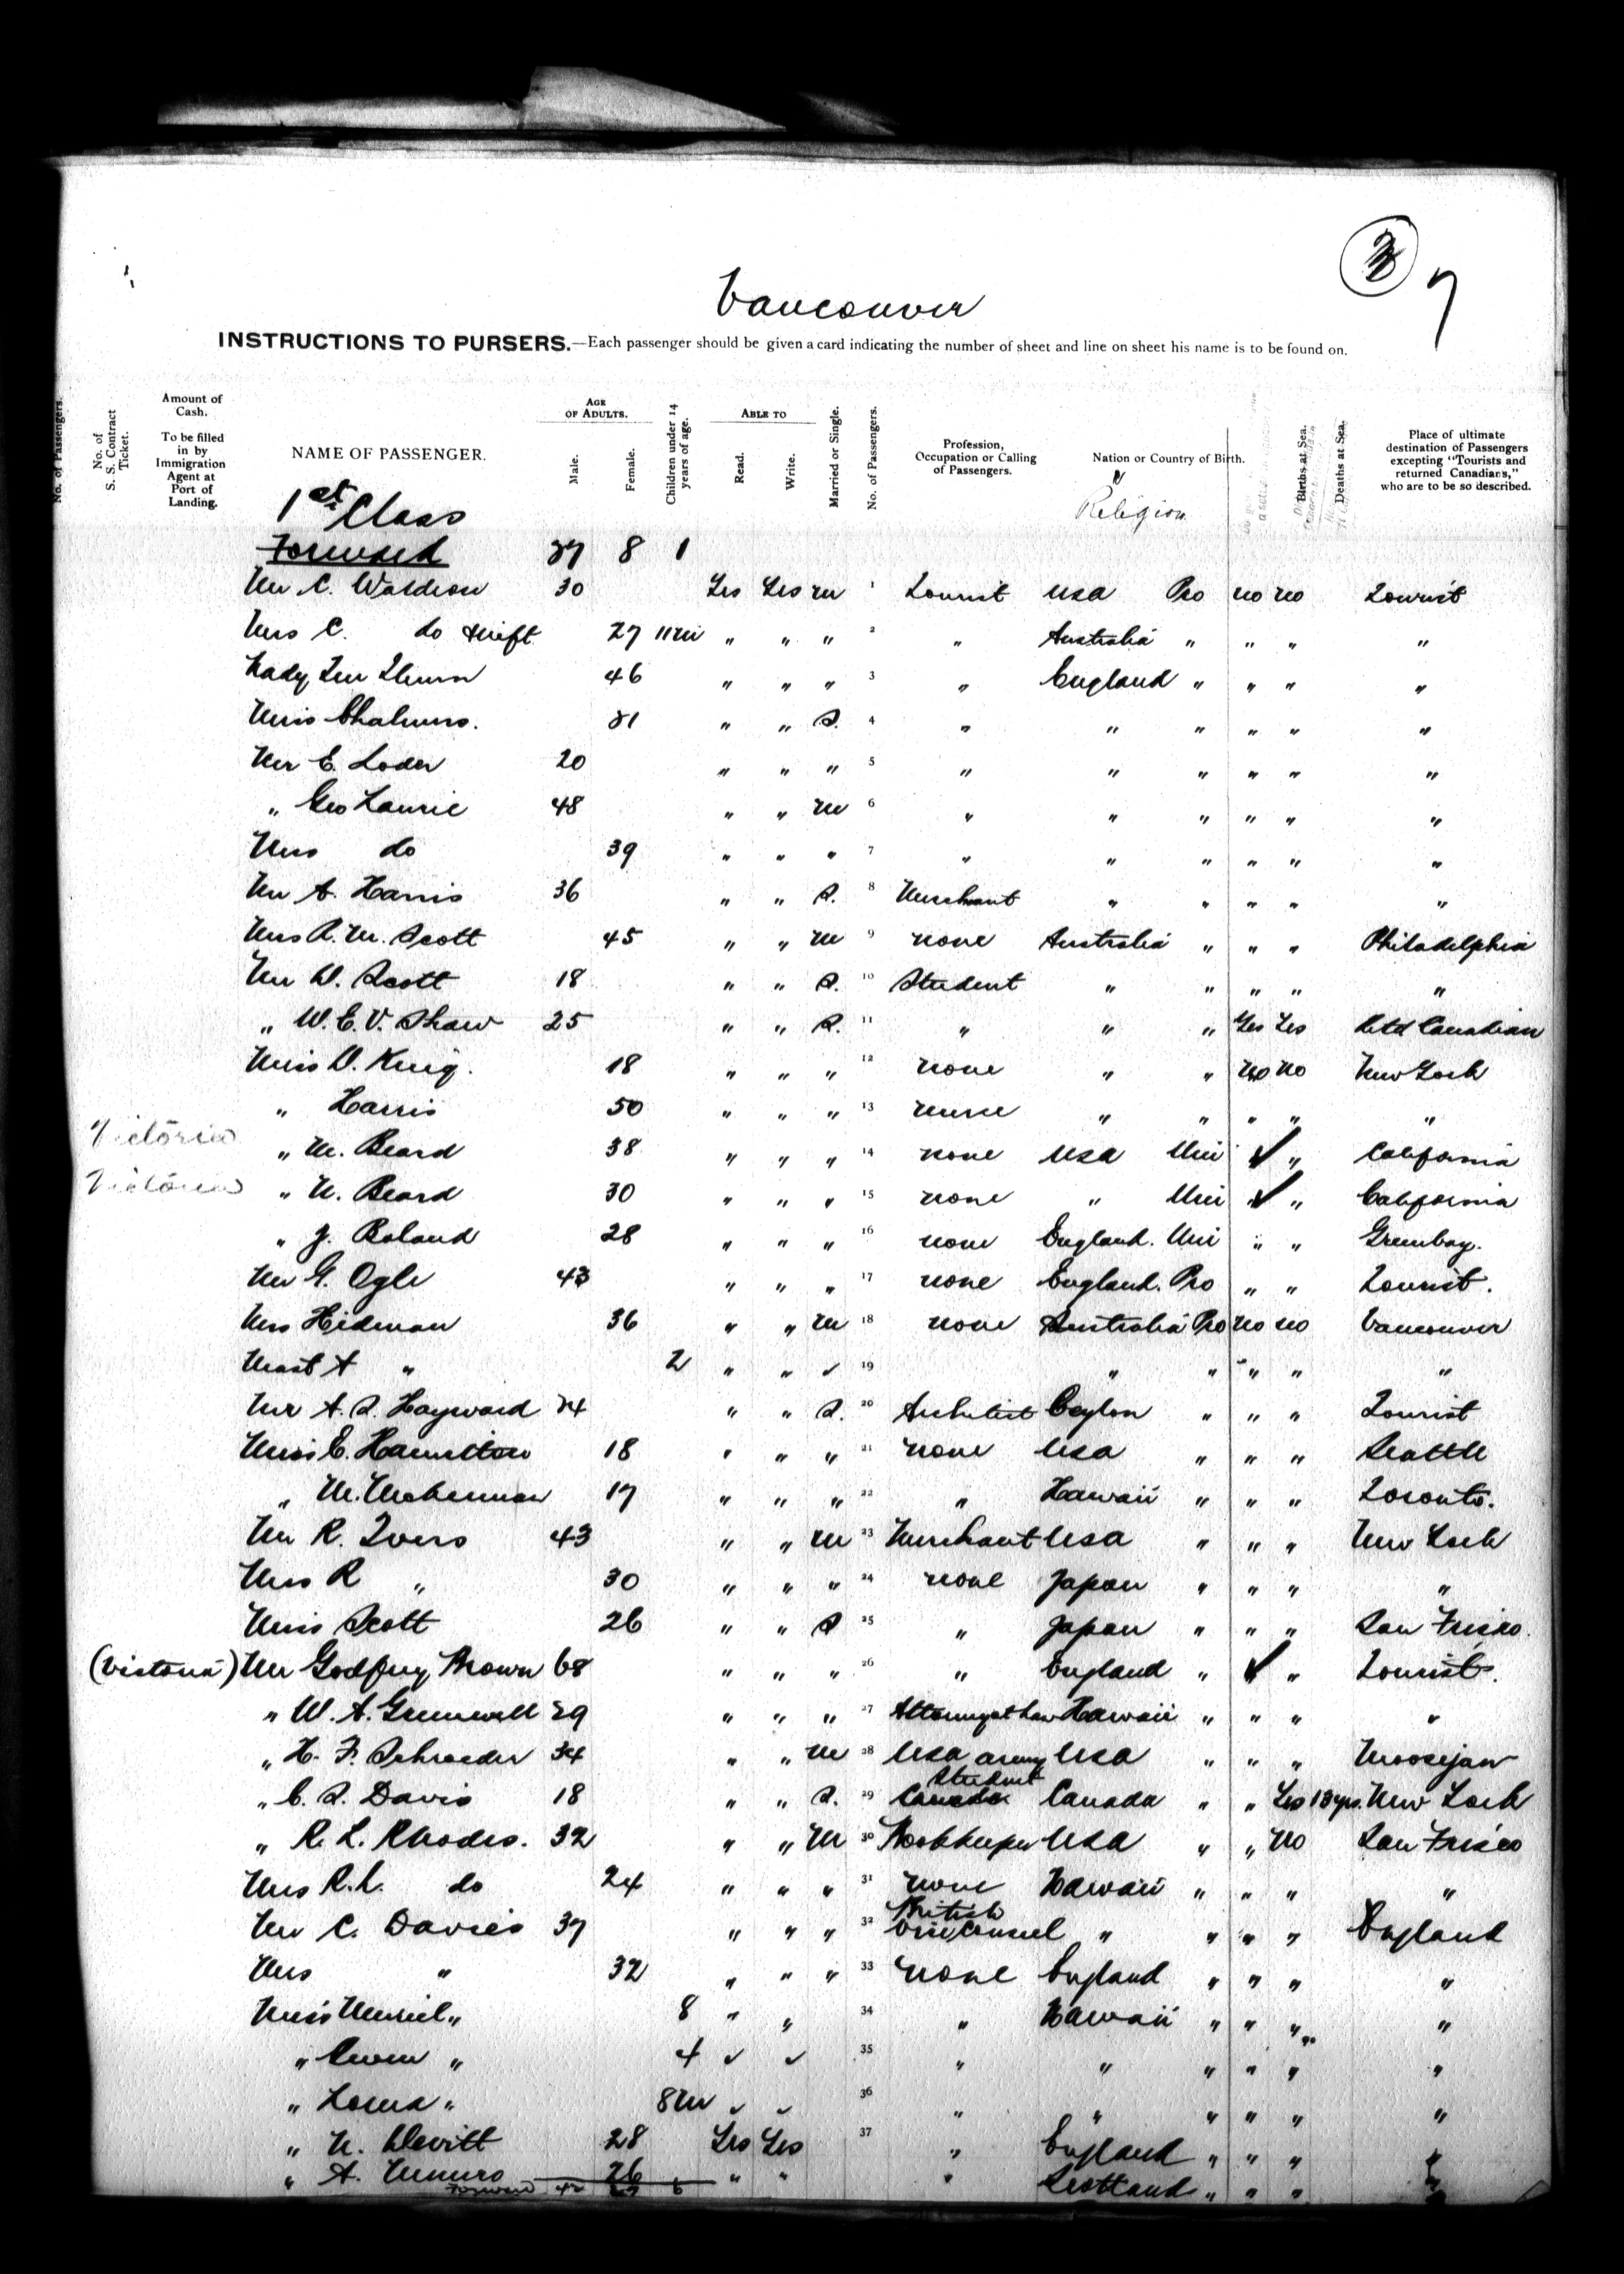 7
Vancouver
INSTRUCTIONS TO PURSERS.—Each passenger should be given a card indicating the number of sheet and line on sheet his name is to be found on.
No. of Passengers.
No. of S. S. Contract Ticket.
Amount of Cash.
To be filled in by Immigration Agent at Port of Landing.
NAME OF PASSENGER.
AGE OF ADULTS.
Male.
Female.
Children under 14 years of age.
ABLE TO
Read.
Write.
Married or Single.
No. of Passengers.
Profession, Occupation or Calling of Passengers.
Nation or Country of Birth.
Religion
Births at Sea.
Deaths at Sea.
Place of ultimate destination of Passengers excepting "Tourists and returned Canadians," who are to be so described.
1st Class
Forward 27 8 1
Mr C. Waldron 30 Yes Yes M 1 Tourist USA Pro no no Tourist
Mrs C. do & inft 27 11m " " " 2 " Australia " " " "
Lady 46 " " " 3 " England " " " "
Miss Chalmers. 21 " " S. 4 " " " " " "
Mr E. Loder 20 " " " 5 " " " " " "
" Geo Laurie 48 " " M 6 " " " " " "
Mrs do 39 " " " 7 " " " " " "
Mr A. Harris 36 " " S. 8 Merchant " " " " "
Mrs A. M. Scott 45 " " M 9 none Australia " " " Philadelphia
Mr D. Scott 18 " " S. 10 Student " " " " "
" W. E. V. Shaw 25 " " S. 11 " " " Yes Yes Retd Canadian
Miss D. King. 18 " " " 12 none " " no no New York
" Harris 50 " " " 13 nurse " " " " "
Victoria " M. Beard 38 " " " 14 none USA Uni ✓ " California
Victoria " N. Beard 30 " " " 15 none " Uni ✓ " California
" J. Boland 28 " " " 16 none England. Uni " " Greenbay.
Mr G. Ogle 43 " " " 17 none England. Pro " " Tourist.
Mrs Hidman 36 " " M 18 none Australia Pro no no Vancouver
Mast A " 2 " " ✓ 19 " " " " "
Mr A. S. Hayward 24 " " S. 20 Architect Ceylon " " " Tourist
Miss E. Hamilton 18 " " " 21 none USA " " " Seattle
" M. 17 " " " 22 " Hawaii " " " Toronto.
Mr R. Ivers 43 " " M 23 Merchant USA " " " New York
Mrs R " 30 " " " 24 none Japan " " " "
Miss Scott 26 " " S 25 " Japan " " " San Frisco.
(Victoria) Mr Godfrey Brown 68 " " " 26 " England " ✓ " Tourist.
" W. A. Greenwell 29 " " " 27 Attorney at Law Hawaii " " " "
" H. F. Schroeder 34 " " M 28 USA army USA " " " Moosejaw
" C. S. Davis 18 " " S. 29 Student Canada Canada " " Yes 13 yrs. New York
" R. L. Rhodes. 32 " " M 30 Bookkeeper USA " " no San Frisco
Mrs R. L. do 24 " " " 31 none Hawaii " " " "
Mr C. Davies 37 " " " 32 British Vice Consul " " " " England
Mrs " 32 " " " 33 none England " " " "
Miss Muriel " 8 " " 34 " Hawaii " " " "
" Gwen " 4 ✓ ✓ 35 " " " " " "
" Lorna " 8m ✓ ✓ 36 " " " " " "
" N. Devitt 28 Yes Yes 37 " England " " " "
" A. Munro 26 " " " Scotland " " " "
Forward 42 6